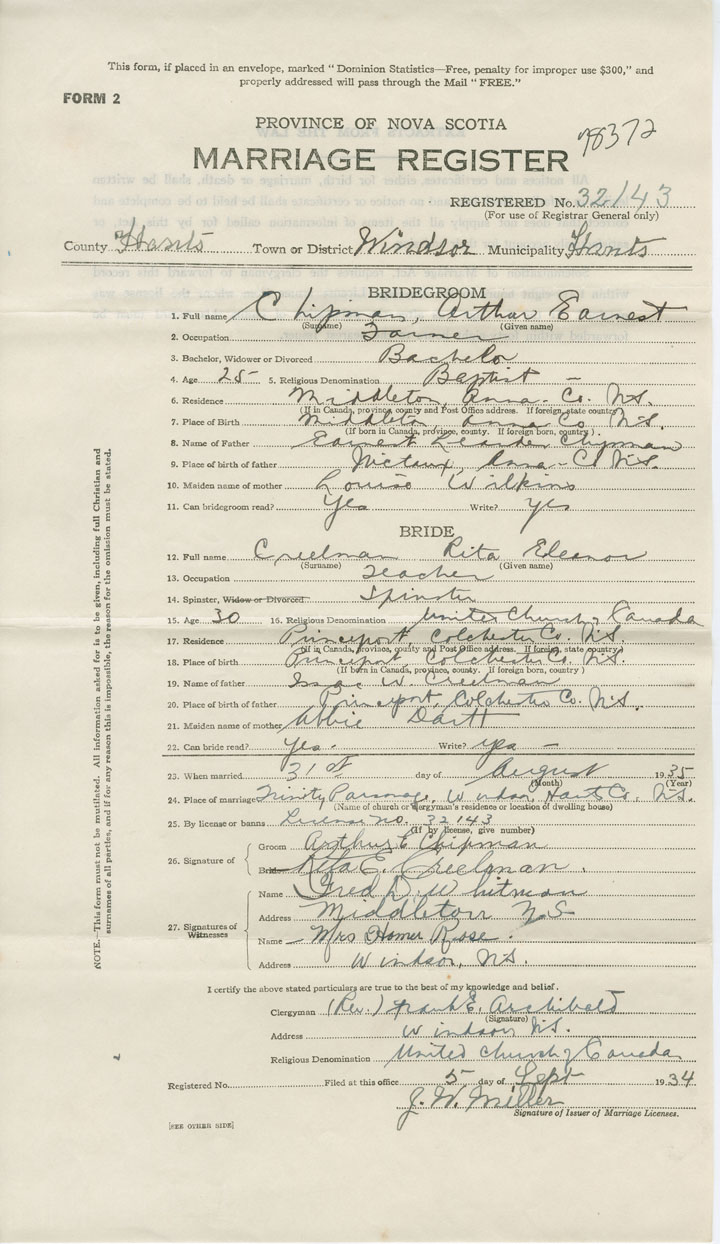 This form, if placed in an envelope, marked "Dominion Statistics—Free, penalty for improper use $300," and
properly addressed will pass through the Mail "FREE."
FORM 2
PROVINCE OF NOVA SCOTIA
78372
MARRIAGE REGISTER
REGISTERED No. 32143
(For use of Registrar General only)
County Hants Town or District Windsor Municipality Hants
BRIDEGROOM
1. Full name Chipman, Arthur Earnest
(Surname) (Given name)
2. Occupation Farmer
3. Bachelor, Widower or Divorced Bachelor
4. Age 25 5. Religious Denomination Baptist
6. Residence Middleton, Anna. Co. N.S.
(If in Canada, province, county and Post Office address. If foreign, state country)
7. Place of Birth Middleton Anna Co. N.S.
(If born in Canada, province, county. If foreign born, country)
8. Name of Father Earnest Leander Chipman
9. Place of birth of father Nictaux, Anna- C N.S.
10. Maiden name of mother Louise Wilkins
11. Can bridegroom read? Yes Write? yes
BRIDE
12. Full name Creelman Rita Eleanor
(Surname) (Given name)
13. Occupation Teacher
14. Spinster, Widow or Divorced Spinster
15. Age 30 16. Religious Denomination United Church of Canada
17. Residence Princeport, Colchester Co. N.S.
(If in Canada, province, county and Post Office address. If foreign, state country)
18. Place of birth Princeport, Colchester Co. N.S.
(If born in Canada, province, county. If foreign born, country)
19. Name of father Isaac W. Creelman
20. Place of birth of father Princeport, Colchester Co. N.S.
21. Maiden name of mother Abbie Dartt
22. Can bride read? Yes. Write? yes
23. When married 31st day of August 1935
(Month) (Year)
24. Place of marriage Trinity Parsonage, Windsor, Hants Co., N.S.
(Name of church or clergyman's residence or location of dwelling house)
25. By license or banns License no. 32143
(If by license, give number)
26. Signature of
Groom Arthur E Chipman
Bride Rita E. Creelman.
27. Signatures of Witnesses
Name Fred D. Whitman
Address Middleton N.S
Name Mrs Homer Rose.
Address Windsor, N.S.
I certify the above stated particulars are true to the best of my knowledge and belief.
Clergyman (Rev.) Frank E. Archibald
(Signature)
Address Windsor N.S.
Religious Denomination United Church of Canada
Registered No. Filed at this office 5 day of Sept 1934
J. W. Miller
Signature of Issuer of Marriage Licenses.
[SEE OTHER SIDE]
NOTE.—This form must not be mutilated. All information asked for is to be given, including full Christian and
surnames of all parties, and if for any reason this is impossible, the reason for the omission must be stated.